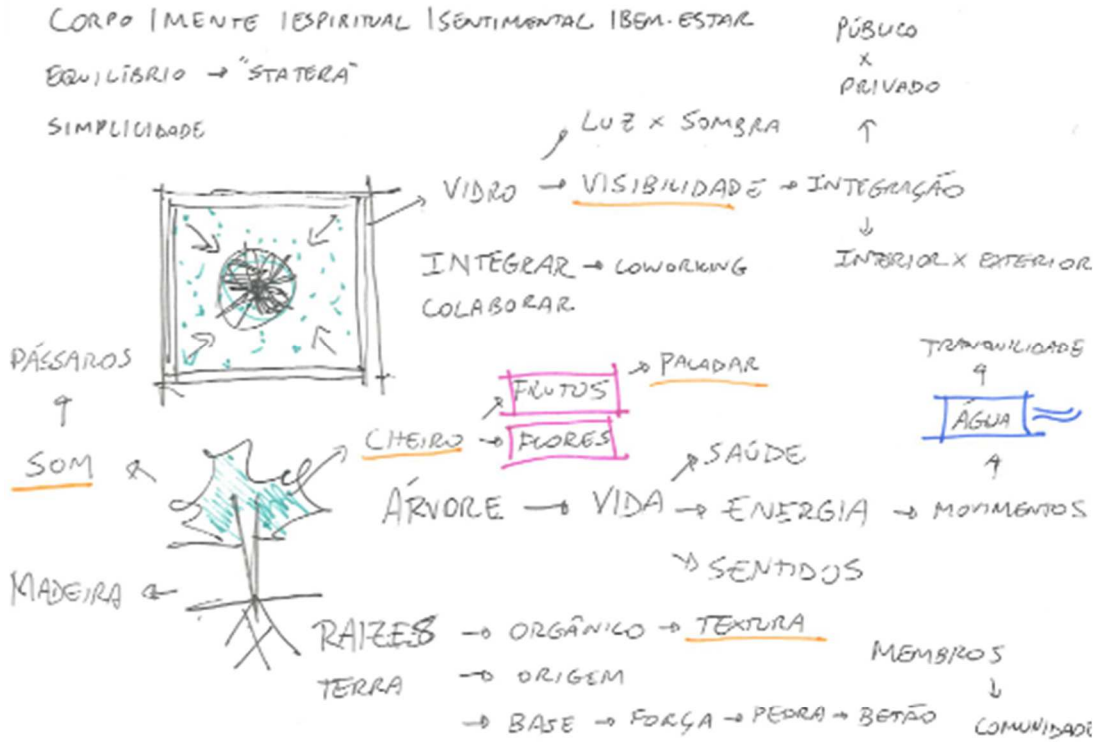 CORPO | MENTE | ESPIRITUAL | SENTIMENTAL | BEM-ESTAR
EQUILÍBRIO → "STATERA"
SIMPLICIDADE
PÚBLICO
x
PRIVADO
LUZ x SOMBRA
VIDRO → VISIBILIDADE → INTEGRAÇÃO
INTERIOR x EXTERIOR
INTEGRAR → COWORKING
COLABORAR
PÁSSAROS
SOM
MADEIRA
CHEIRO
FRUTOS → PALADAR
FLORES
TRANQUILIDADE
ÁGUA
ÁRVORE → VIDA → ENERGIA → MOVIMENTOS
SAÚDE
SENTIDOS
RAIZES → ORGÂNICO → TEXTURA
TERRA → ORIGEM
→ BASE → FORÇA → PEDRA → BETÃO
MEMBROS
↓
COMUNIDADE